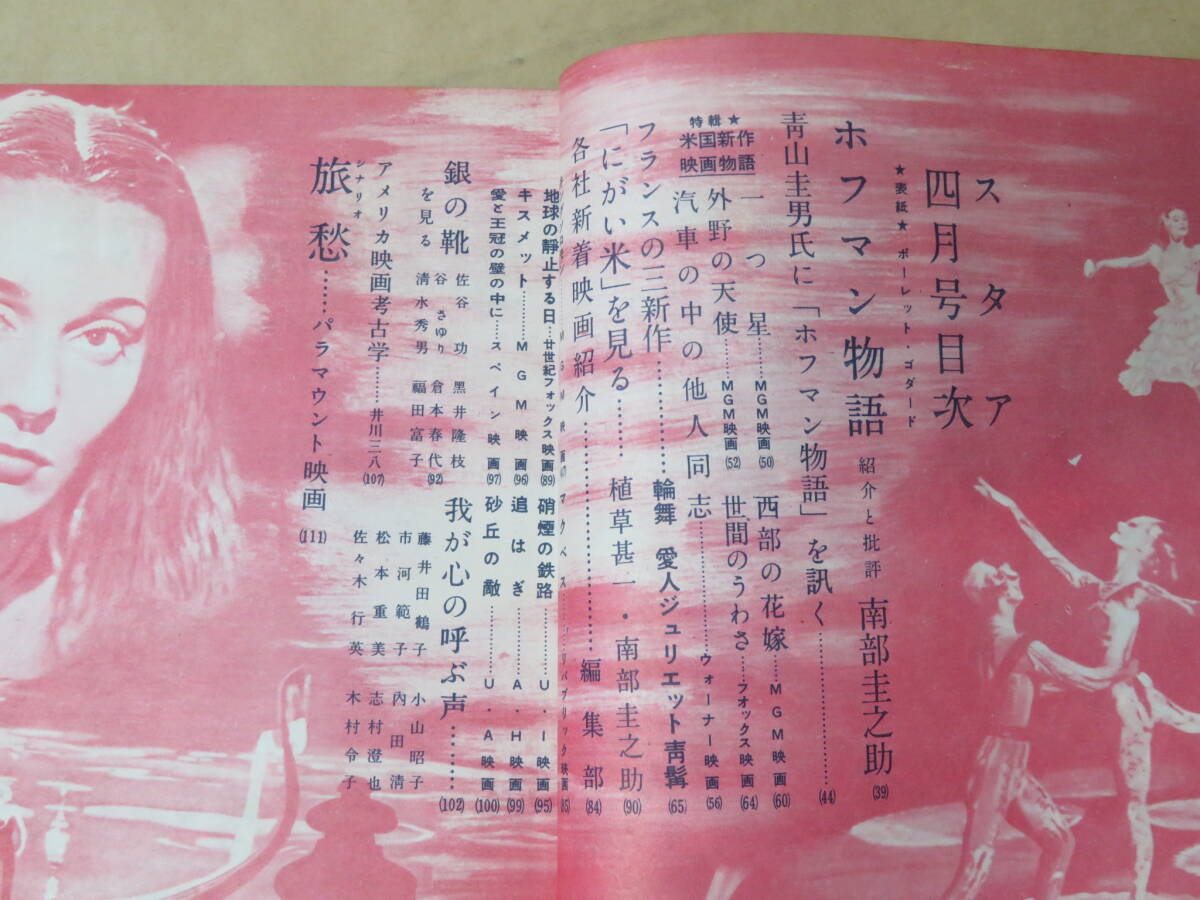 スタア
四月号目次
★表紙★ ポーレット・ゴダード
ホフマン物語 紹介と批評 南部圭之助 (39)
靑山圭男氏に「ホフマン物語」を訊く………(44)
特輯★
米国新作
映画物語
一つ星……MGM映画(50)
西部の花嫁……MGM映画(60)
外野の天使……MGM映画(52)
世間のうわさ…フオックス映画(64)
汽車の中の他人同志…………ウォーナー映画(56)
フランスの三新作…………輪舞 愛人ジュリエット 靑髯(65)
「にがい米」を見る……植草甚一・南部圭之助(90)
各社新着映画紹介……………編集部(84)
マクベス……リパブリック映画(85)
地球の靜止する日…廿世紀フォックス映画(89)
硝煙の鉄路…………U・I映画(95)
キスメット………MGM映画(96)
追はぎ…………A・H映画(99)
愛と王冠の壁の中に……スペイン映画(97)
砂丘の敵…………U・A映画(100)
銀の靴を見る
佐谷功 黑井隆枝
谷さゆり 倉本春代
淸水秀男 福田富子
(92)
我が心の呼ぶ声………(102)
藤井田鶴子 小山昭子
市河範子 內田淸
松本重美 志村澄也
佐々木行英 木村令子
アメリカ映画考古学………井川三八(107)
シナリオ
旅愁……パラマウント映画(111)